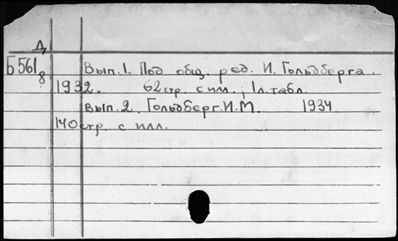 Д
Б 561
8
Вып. 1. Под общ. ред. И. Гольдберга.
1932. 62 стр. с илл.; 1 л. табл.
Вып. 2. Гольдберг. И. М. 1934
140 стр. с илл.